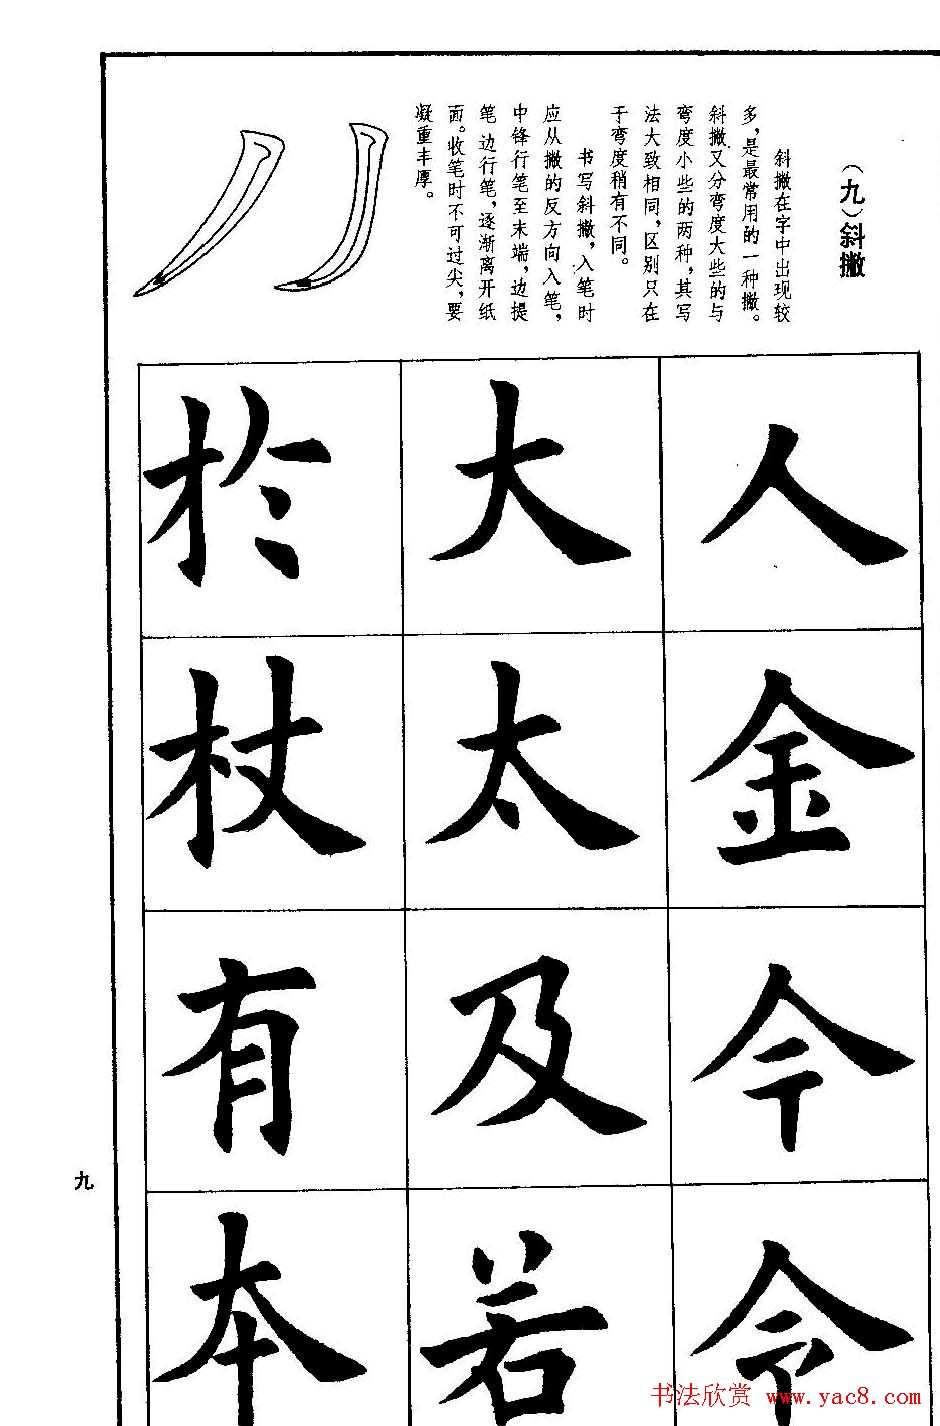 （九）斜撇
斜撇在字中出现较
多，是最常用的一种撇。
斜撇又分弯度大些的与
弯度小些的两种，其写
法大致相同，区别只在
于弯度稍有不同。
书写斜撇，入笔时
应从撇的反方向入笔，
中锋行笔至末端，边提
笔边行笔，逐渐离开纸
面。收笔时不可过尖，要
凝重丰厚。
人
金
今
令
大
太
及
若
於
杖
有
本
九
书法欣赏 www.yac8.com